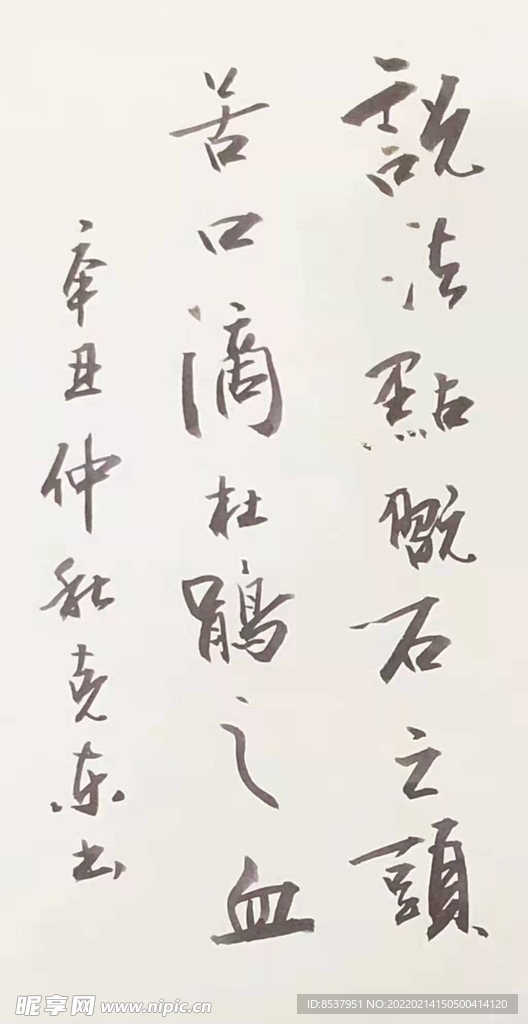 說法點石之頭
苦口滴杜鵑之血
辛丑仲秋克东书
昵享网 www.nipic.cn
ID:8537951 NO:20220214150500414120